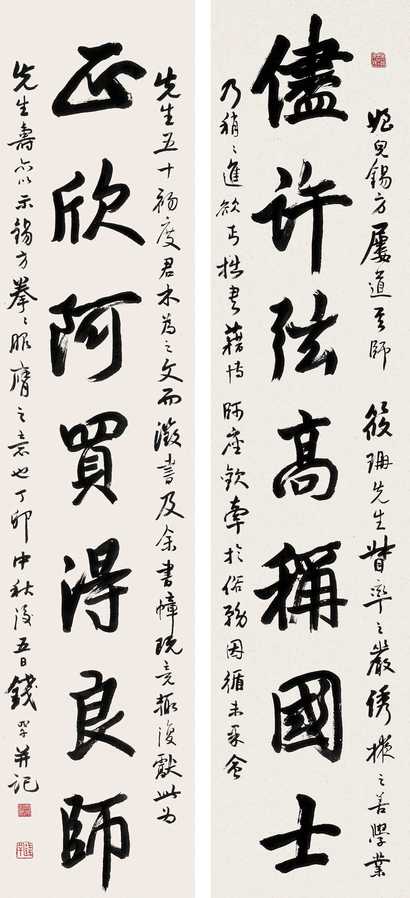 姪兒錫方屢道其師 筱珊先生督率之嚴誘掖之善學業
儘許弦高稱國士
乃稍々進欲丐拙書藉博師座欽牽於俗務因循未果會
先生五十初度君木為之文而澂書及余書幛既竟輒復獻此為
正欣阿買得良師
先生壽亦以示錫方拳々服膺之意也丁卯中秋後五日錢罕并記